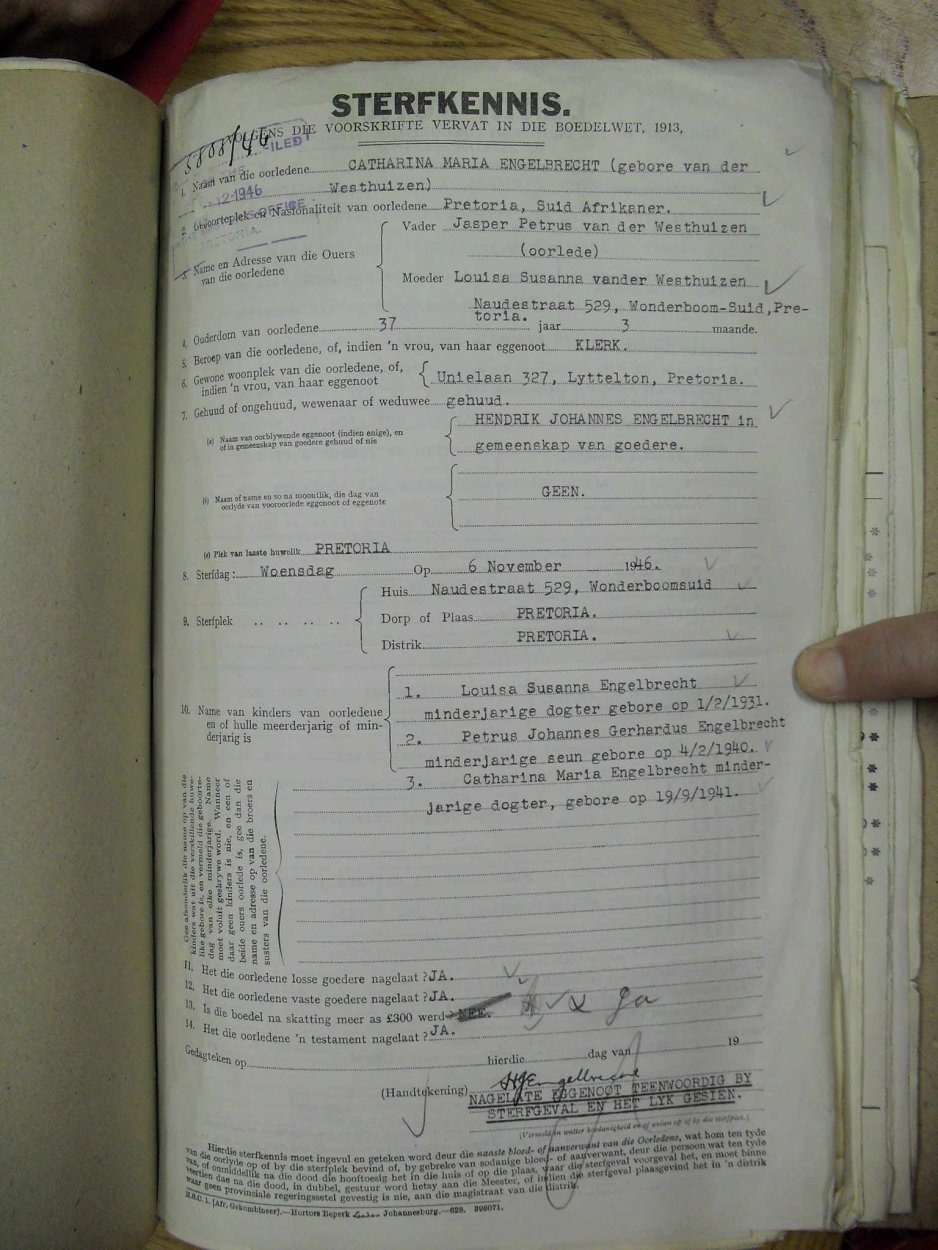 STERFKENNIS.
VOLGENS DIE VOORSKRIFTE VERVAT IN DIE BOEDELWET, 1913,
5808/46
FILED
1. Naam van die oorledene CATHARINA MARIA ENGELBRECHT (gebore van der
Westhuizen)
12.1946
2. Geboorteplek en Nasionaliteit van oorledene Pretoria, Suid Afrikaner.
OFFICE
PRETORIA.
3. Name en Adresse van die Ouers
van die oorledene
Vader Jasper Petrus van der Westhuizen
(oorlede)
Moeder Louisa Susanna vander Westhuizen
Naudestraat 529, Wonderboom-Suid,Pre-
toria.
4. Ouderdom van oorledene 37 jaar 3 maande.
5. Beroep van die oorledene, of, indien 'n vrou, van haar eggenoot KLERK.
6. Gewone woonplek van die oorledene, of,
indien 'n vrou, van haar eggenoot
Unielaan 327, Lyttelton, Pretoria.
7. Gehuud of ongehuud, wewenaar of weduwee gehuud.
(a) Naam van oorblywende eggenoot (indien enige), en
of in gemeenskap van goedere gehuud of nie
HENDRIK JOHANNES ENGELBRECHT in
gemeenskap van goedere.
(b) Naam of name en so na moontlik, die dag van
oorlyde van vooroorlede eggenoot of eggenote
GEEN.
(c) Plek van laaste huwelik PRETORIA
8. Sterfdag: Woensdag Op 6 November 1946.
9. Sterfplek
Huis Naudestraat 529, Wonderboomsuid
Dorp of Plaas PRETORIA.
Distrik PRETORIA.
10. Name van kinders van oorledene
en of hulle meerderjarig of min-
derjarig is
1. Louisa Susanna Engelbrecht
minderjarige dogter gebore op 1/2/1931.
2. Petrus Johannes Gerhardus Engelbrecht
minderjarige seun gebore op 4/2/1940.
3. Catharina Maria Engelbrecht minder-
jarige dogter, gebore op 19/9/1941.
Gee afsonderlik die name op van die
kinders wat uit die verskillende huwe-
like gebore is, en vermeld die geboorte-
dag van elke minderjarige. Name
moet voluit geskrywe word. Wanneer
daar geen kinders is nie, en een of
beide ouers oorlede is, gee dan die
name en adresse op van die broers en
susters van die oorledene.
11. Het die oorledene losse goedere nagelaat? JA.
12. Het die oorledene vaste goedere nagelaat? JA.
13. Is die boedel na skatting meer as £300 werd? NEE. Ja
14. Het die oorledene 'n testament nagelaat? JA.
Gedagteken op hierdie dag van 19
(Handtekening) HJEngelbrecht
NAGELATE EGGENOOT TEENWOORDIG BY
STERFGEVAL EN HET LYK GESIEN.
(Vermeld in watter hoedanigheid en of aldan op of by die sterfplek.)
Hierdie sterfkennis moet ingevul en geteken word deur die naaste bloed- of aanverwant van die Oorledene, wat hom ten tyde
van die oorlyde op of by die sterfplek bevind of, by gebreke van sodanige bloed- of aanverwant, deur die persoon wat ten tyde
van, of onmiddelik na die dood die hooftoesig het in die huis of op die plaas, waar die sterfgeval voorgeval het, en moet binne
veertien dae na die dood, in dubbel, gestuur word hetsy aan die Meester, of indien die sterfgeval plaasgevind het in 'n distrik
waar geen provinsiale regeringssetel gevestig is nie, aan die magistraat van die distrik.
M.B.C. 1. [Afr. Gekombineer].—Hortors Beperk Johannesburg.—628. 398071.